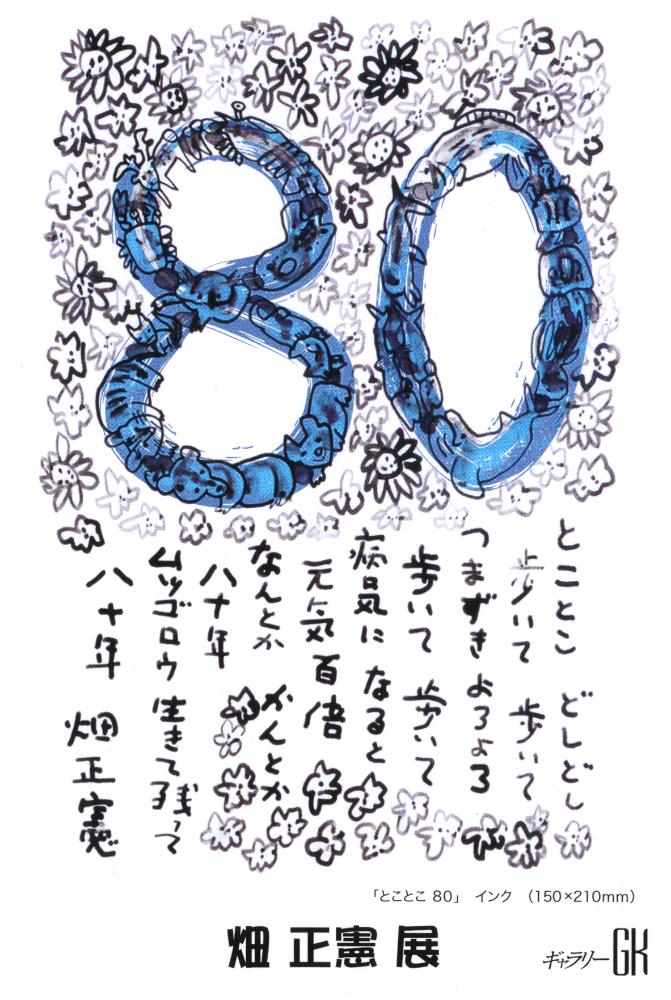 80
とことこ どしどし
歩いて 歩いて
つまずき よろよろ
歩いて 歩いて
病気に なると
元気百倍
なんとか かんとか
八十年
ムツゴロウ 生きて残って
八十年 畑正憲
「とことこ 80」 インク (150×210mm)
畑 正憲 展
ギャラリーGK